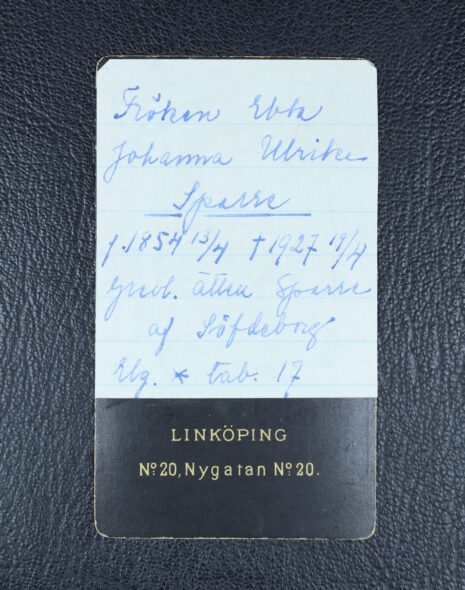 Fröken Ebba
Johanna Ulrika
Sparre
f. 1854 13/4 † 1927 19/4
Grevl. ätten Sparre
af Söfdeborg
Elg. * tab. 17
LINKÖPING
Nº 20, Nygatan Nº 20.